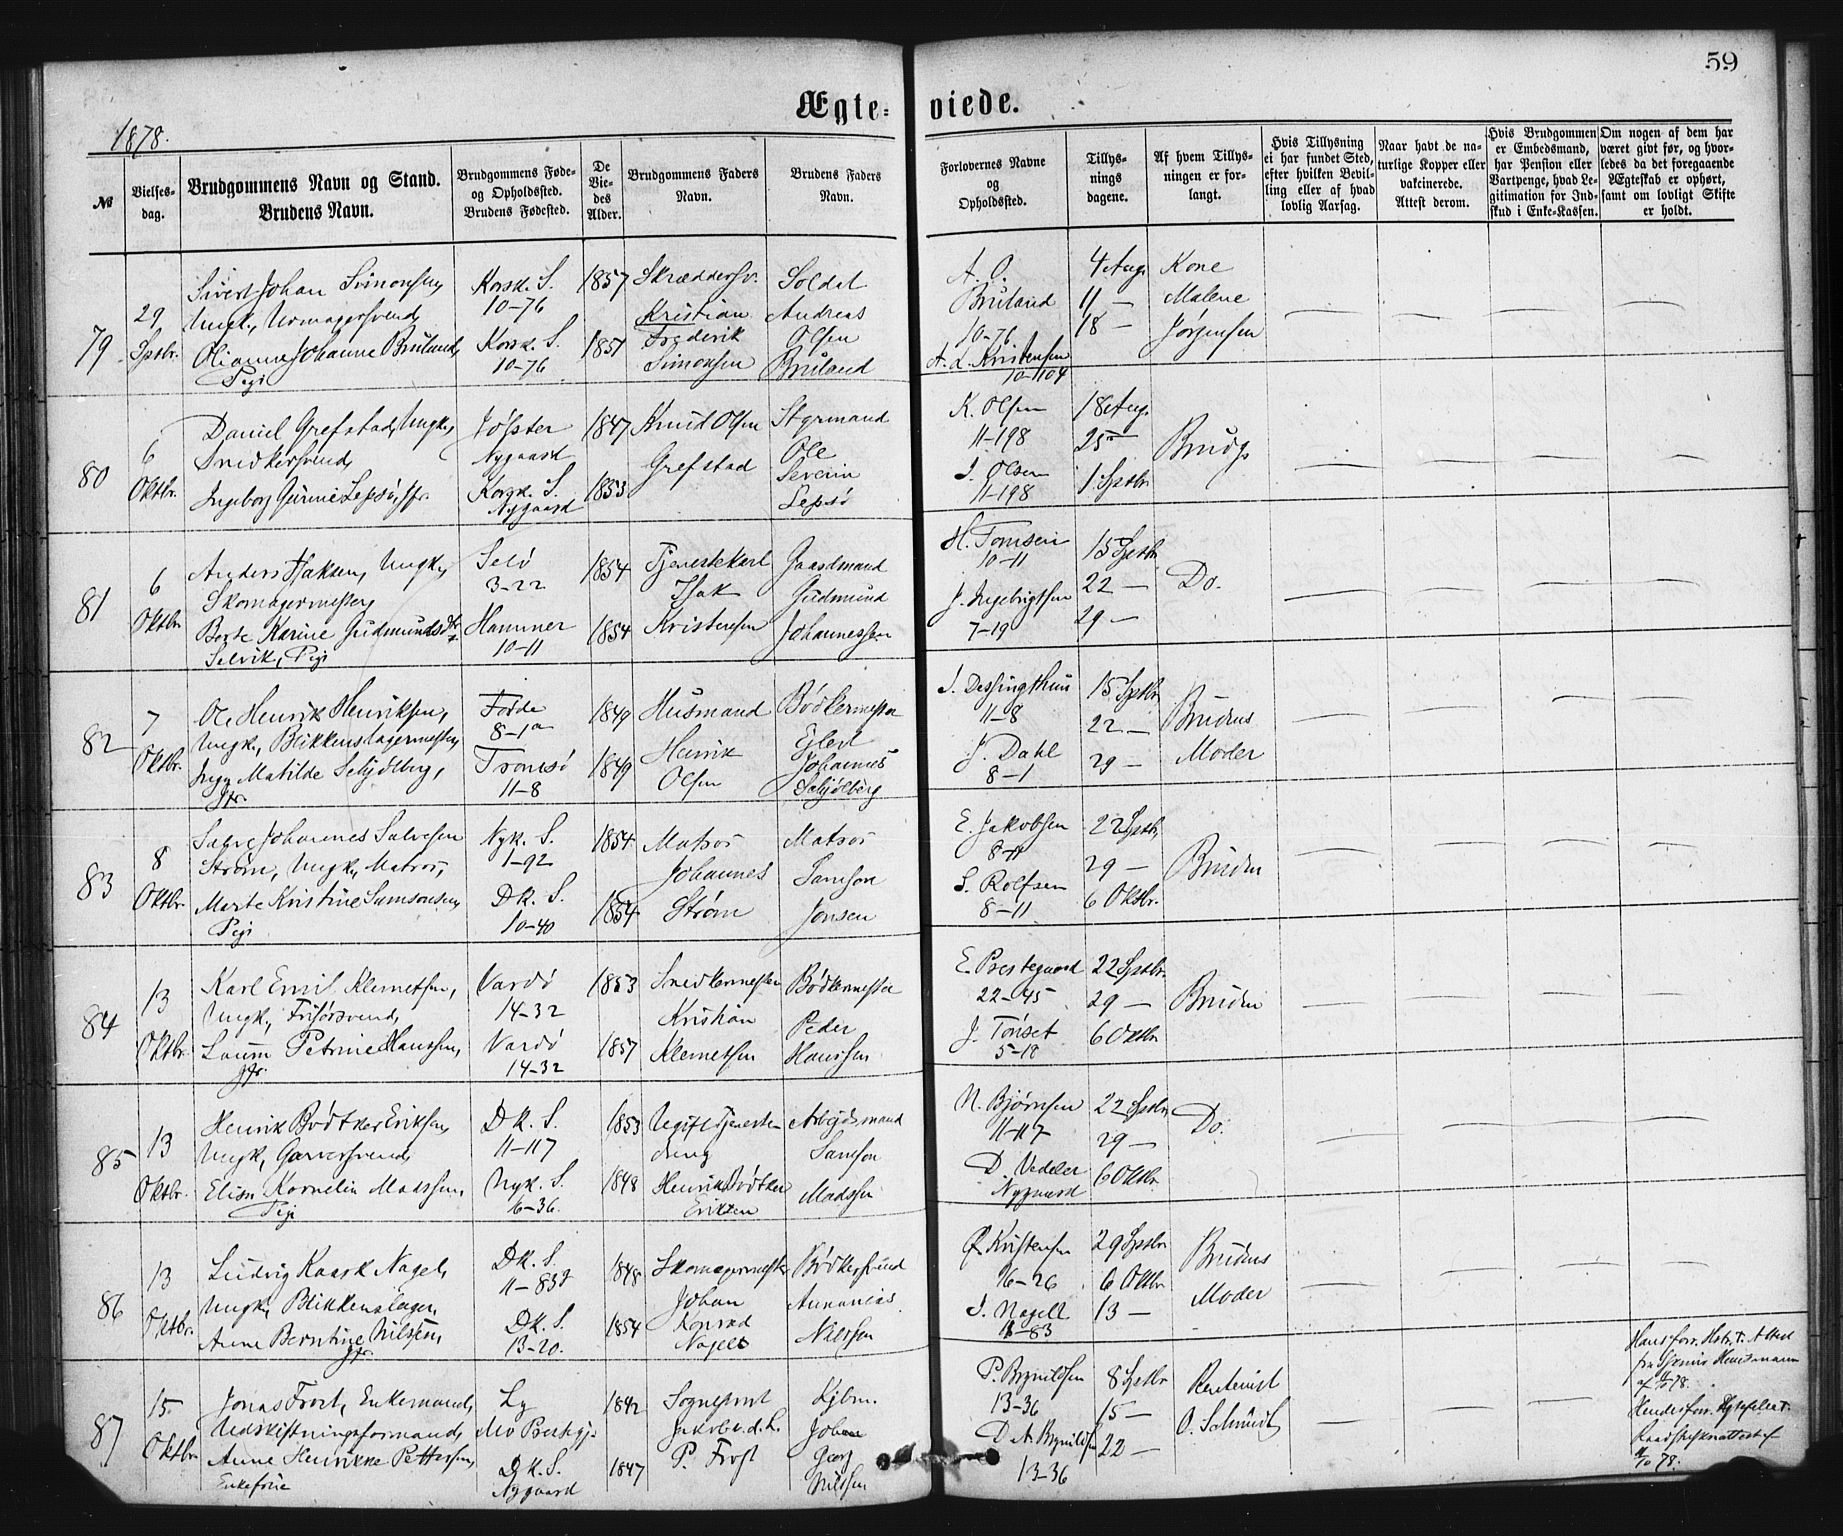 59
Ægte-viede.
1878.
№
Vielses-
dag.
Brudgommens Navn og Stand.
Brudens Navn.
Brudgommens Føde-
og Opholdssted.
Brudens Fødested.
De
Vie-
des
Alder.
Brudgommens Faders
Navn.
Brudens Faders
Navn.
Forlovernes Navne
og
Opholdssted.
Tillys-
nings
dagene.
Af hvem Tillys-
ningen er for-
langt.
Hvis Tillysning
ei har fundet Sted,
efter hvilken Bevil-
ling eller af hvad
lovlig Aarsag.
Naar havt de na-
turlige Kopper eller
vakcinerede.
Attest derom.
Hvis Brudgommen
er Embedsmand,
har Pension eller
Vartpenge, hvad Le-
gitimation for Ind-
skud i Enke-Kassen.
Om nogen af dem har
været givt før, og hvor-
ledes da det foregaaende
Ægteskab er ophørt,
samt om lovligt Skifte
er holdt.
79
29
Sptbr.
Sivert Johan Simonsen,
Ungk., Urmagersvend,
Johanne Bruland,
Pige
Korsk. S.
10-76
Korsk. S.
10-76
1857
1857
Skræddersv.
Kristian
Frederik
Simonsen
Soldat
Andreas
Olsen
Bruland
A. O.
Bruland
10-76
A. L. Kristensen
10-104
4 Aug.
11 —
18 —
Kone
Malene
Jørgensen
80
6
Oktbr.
Daniel Grefstad, Ungk.,
Snedkersvend,
Ingeborg Gurine Lepsø, Jfr.
Jølster
Nygaard
Korsk. S.
Nygaard
1847
1853
Knud Olsen
Grefstad
Styrmand
Ole
Severin
Lepsø
K. Olsen
11-198
J. Olsen
11-198
18 Aug.
25 —
1 Sptbr.
Brudg.
81
6
Oktbr.
Anders Isaksen, Ungk.,
Skomagermester,
Berte Karine Gudmundsdtr.
Selvik, Pige
Selø
3-22
Hammer
10-11
1854
1854
Tjenestekarl
Isak
Kristensen
Gaardmand
Gudmund
Johannessen
H. Tomsen
10-11
J. Ingebrigtsen
7-19
15 Sptbr.
22 —
29 —
Do.
82
7
Oktbr.
Ole Henrik Henriksen,
Ungk., Blikkenslagermester,
Inga Matilde Schjølberg,
Jfr.
Førde
8-1a
Tromsø
11-8
1849
1849
Husmand
Henrik
Olsen
Bødkermester
Eilert
Johannes
Schjølberg
11-8
J. Dahl
8-1
15 Sptbr.
22 —
29 —
Brudens
Moder
83
8
Oktbr.
Salve Johannes Salvesen
Strøm, Ungk., Matros,
Marte Kristine Samsonsen,
Pige
Nyk. S.
1-92
Dk. S.
10-40
1854
1854
Matros
Johannes
Strøm
Matros
Samson
Jonsen
E. Jakobsen
8-11
S. Rolfsen
8-11
22 Sptbr.
29 —
6 Oktbr.
Bruden
84
13
Oktbr.
Karl Emil Klemetsen,
Ungk., Frisørsvend,
Laura Petrine Hanssen,
Jfr.
Vardø
14-32
Vardø
14-32
1853
1857
Snedkermester
Kristian
Klemetsen
Bødkermester
Peder
Hanssen
E. Prestegaard
22-45
J. Tønset
5-18
22 Sptbr.
29 —
6 Oktbr.
Bruden
85
13
Oktbr.
Henrik Bødtker Eriksen,
Ungk., Garversvend,
Elisa Kornelia Madssen,
Pige
Dk. S.
11-117
Nyk. S.
16-36.
1853
1848
Ugift Tjeneste-
dreng
Henrik Bødtker
Eriksen
Arbejdsmand
Samson
Madssen
N. Bjørnsen
11-117
D. Vedeler
Nygaard
22 Sptbr.
29 —
6 Oktbr.
Do.
86
13
Oktbr.
Ludvig Kaark Nagel,
Ungk., Blikkenslager,
Anne Berntine Nilssen,
Jfr.
Dk. S.
11-83
Dk. S.
13-20.
1848
1854
Skomagermester
Johan
Konrad
Nagel
Bødkersvend
Ananias
Nilssen
Kristensen
16-26
J. Nagell
11-83
29 Sptbr.
6 Oktbr.
13 —
Brudens
Moder
87
15
Oktbr.
Jonas Frost, Enkemand,
Udskiftningsformand,
Anne Henrikke Pettersen,
Enkefrue
Ly
Mo Prestgj.
Dk. S.
Nygaard
1842
1847
Sogneprest
Jakob v. d. L.
P. Frost
Kjbm.
Johan
Georg
Nilssen
P. Brynildsen
13-36
D. A. Brynildsen
13-36
8 Sptbr.
15 —
22 —
Rentenist
O. Schmidt